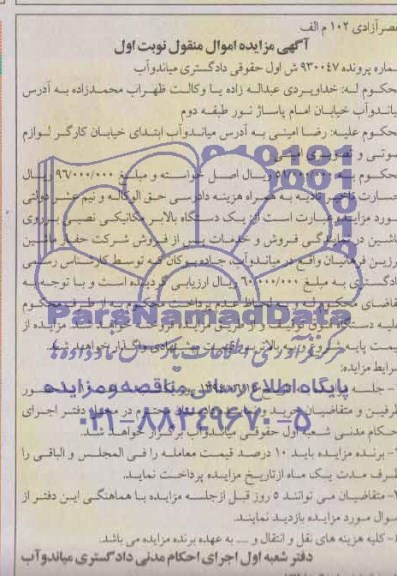 عصرآزادی ۱۰۲ م الف
آگهی مزایده اموال منقول نوبت اول
شماره پرونده ۹۳۰۰۴۷ ش اول حقوقی دادگستری میاندوآب
محکوم له: خداویردی عبداله زاده با وکالت ظهراب محمدزاده به آدرس
میاندوآب خیابان امام پاساژ نور طبقه دوم
محکوم علیه: رضا امینی به آدرس میاندوآب ابتدای خیابان کارگر لوازم
صوتی و تصویری امینی
محکوم به: ریال اصل خواسته و مبلغ ۹۶/۰۰۰/۰۰۰ ریال
خسارت تاخیر تادیه به همراه هزینه دادرسی حق الوکاله و نیم عشر دولتی
مورد مزایده عبارت است از: یک دستگاه بالابر مکانیکی نصبی بر روی
ماشین در نمایندگی فروش و خدمات پس از فروش شرکت حفار ماشین
واقع در میاندوآب، جاده بوکان که توسط کارشناس رسمی
دادگستری به مبلغ ۶۰/۰۰۰/۰۰۰ ریال ارزیابی گردیده است و با توجه به
تقاضای محکوم له و به لحاظ عدم پرداخت محکوم به از طرف محکوم
علیه دستگاه فوق توقیف و از طریق مزایده فروخته خواهد شد. مزایده از
قیمت پایه شروع و به بالاترین قیمت پیشنهادی واگذار خواهد شد.
شرایط مزایده:
۱- جلسه
طرفین و متقاضیان خرید و نماینده محترم در محل دفتر اجرای
احکام مدنی شعبه اول حقوقی میاندوآب برگزار خواهد شد.
۲- برنده مزایده باید ۱۰ درصد قیمت معامله را فی المجلس و الباقی را
ظرف مدت یک ماه از تاریخ مزایده پرداخت نماید.
۳- متقاضیان می توانند ۵ روز قبل از جلسه مزایده با هماهنگی این دفتر از
اموال مورد مزایده بازدید نمایند.
۴- کلیه هزینه های نقل و انتقال و .... به عهده برنده مزایده می باشد.
دفتر شعبه اول اجرای احکام مدنی دادگستری میاندوآب
ParsNamadData
مرکز فرآوری اطلاعات پارس نماد داده ها
پایگاه اطلاع رسانی مناقصه و مزایده
۰۲۱-۸۸۳۴۹۶۷۰-۵